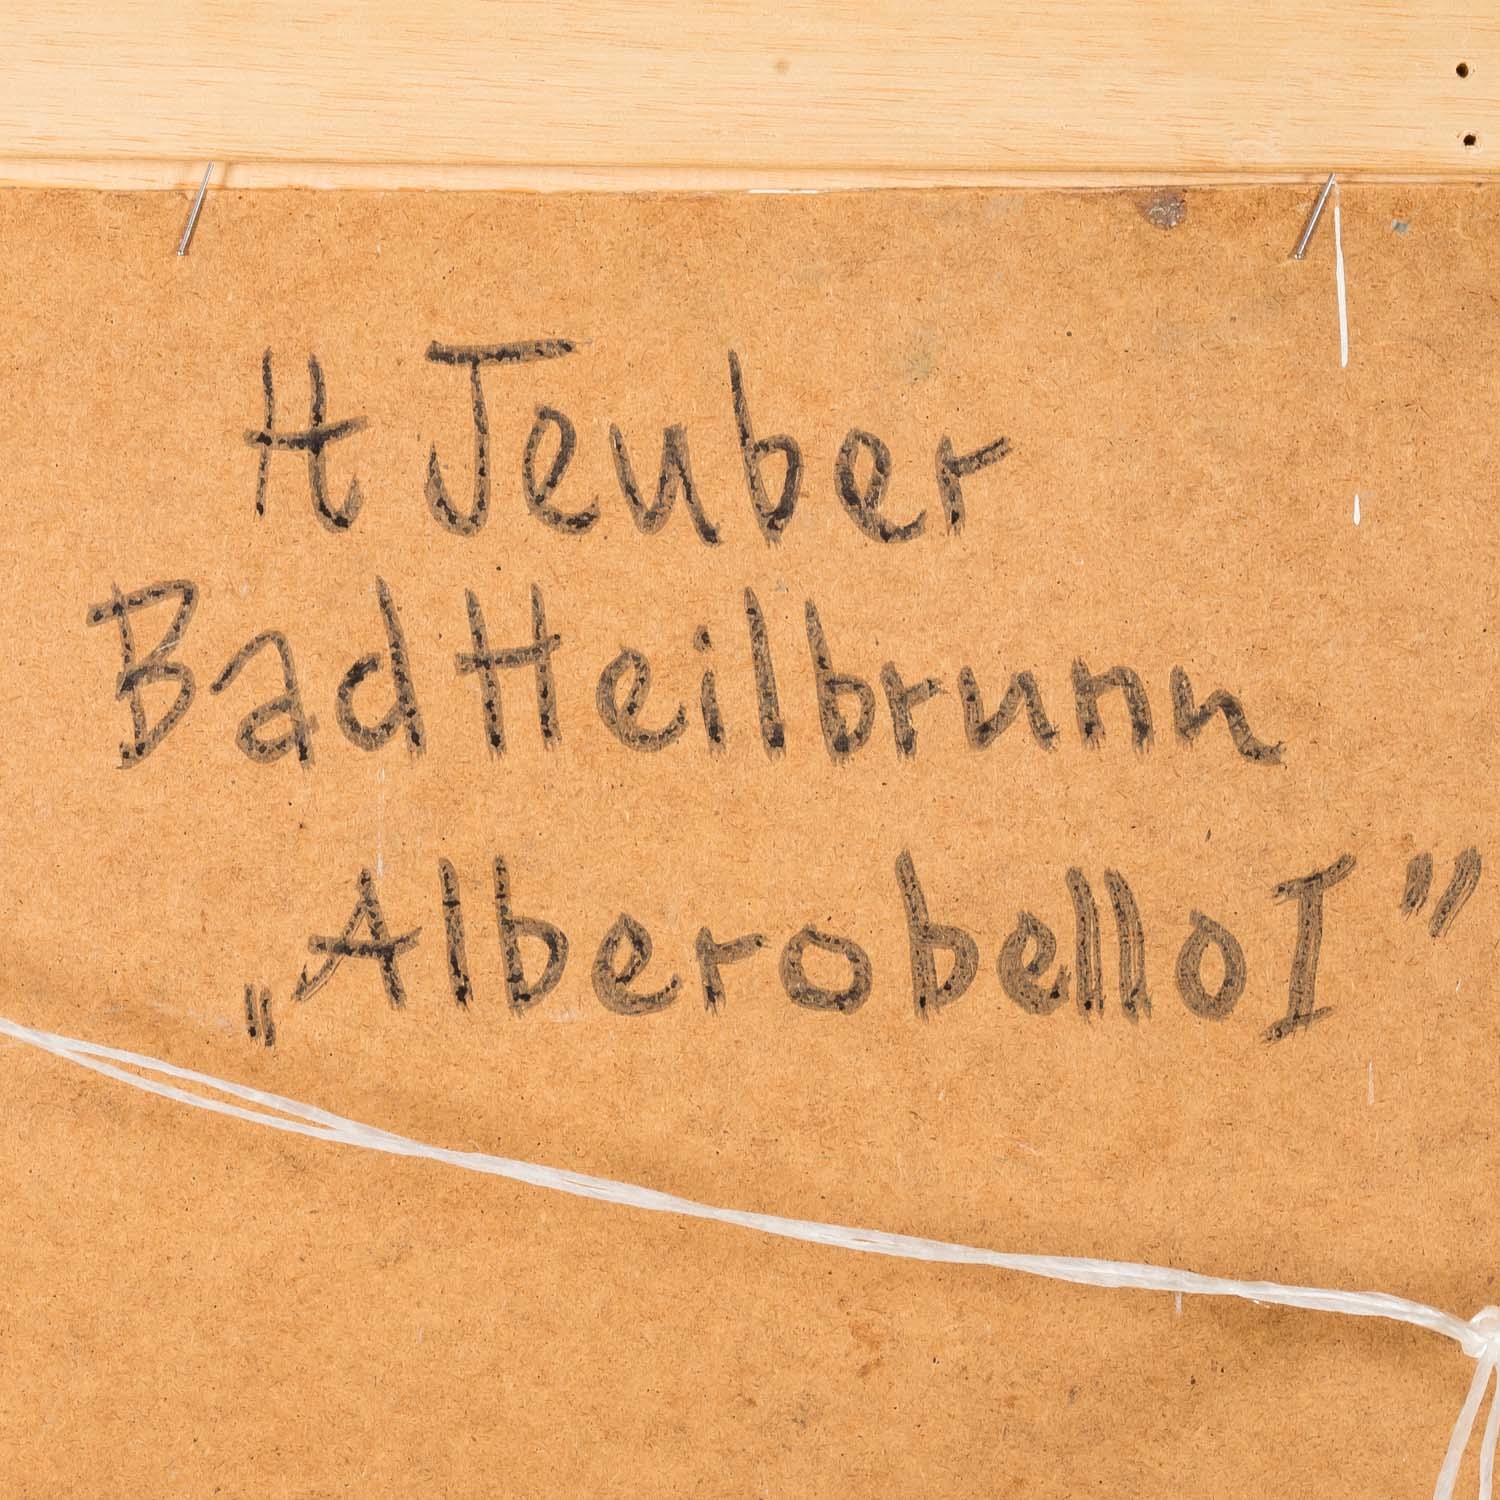 H Jeuber
Bad Heilbrunn
„Alberobello I”